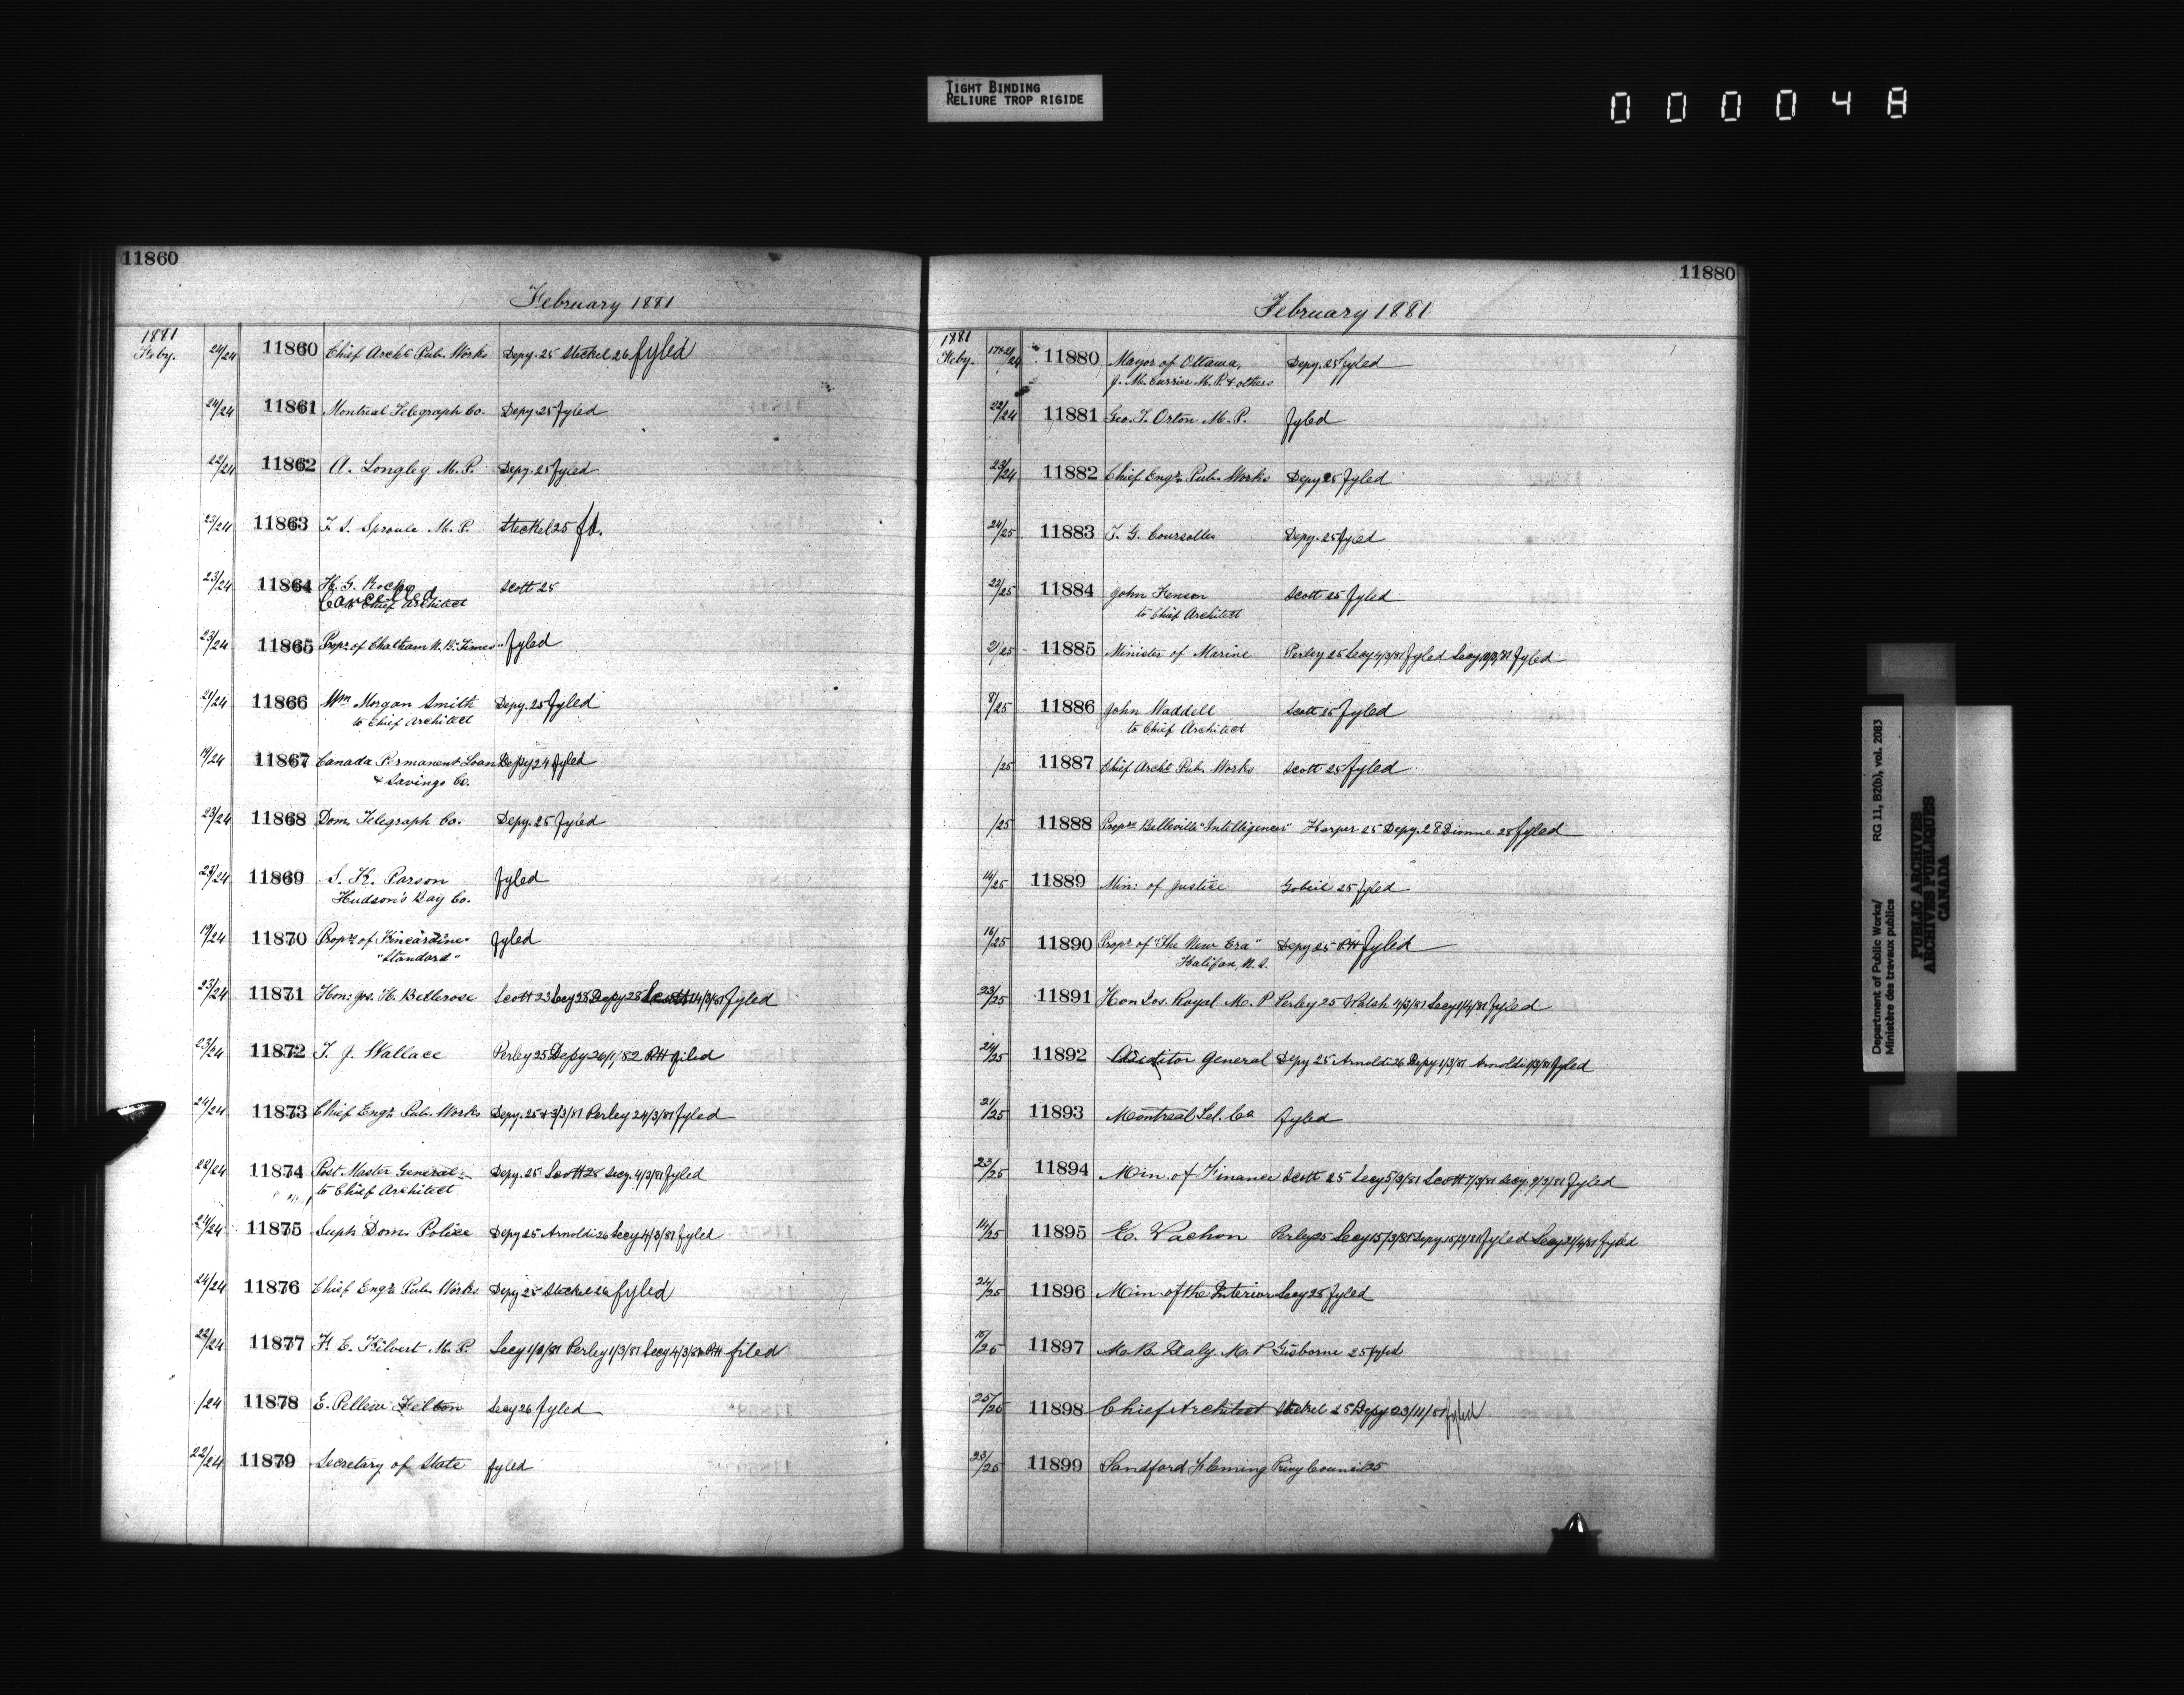 TIGHT BINDING
RELIURE TROP RIGIDE
000048
11860
February 1881
1881
Feby. 24/24 11860 Chief Archt. Pub. Works Depy. 25 Steckel 26 fyled
24/24 11861 Montreal Telegraph Co. Depy. 25 fyled
22/24 11862 A. Longley M.P. Depy. 25 fyled
23/24 11863 T. S. Sproule M.P. Steckel 25 fd.
23/24 11864 H. G. Roche Scott 25
Cancelled
to Chief Architect
23/24 11865 Propr. of Chatham N.B. "Times" fyled
21/24 11866 Wm Morgan Smith Depy. 25 fyled
to Chief Architect
19/24 11867 Canada Permanent Loan Depy 24 fyled
& Savings Co.
23/24 11868 Dom. Telegraph Co. Depy. 25 fyled
23/24 11869 S. K. Parson fyled
Hudson's Bay Co.
19/24 11870 Proprs of Kincardine fyled
"Standard"
23/24 11871 Hon: Jos. H. Bellerose Scott 23 Secy 28 Depy 28 Scott 14/3/81 fyled
23/24 11872 T. J. Wallace Perley 25 Depy 26/1/82 RH filed
24/24 11873 Chief Engr. Pub. Works Depy. 25 & 3/3/81 Perley 24/3/81 fyled
22/24 11874 Post Master General Depy. 25 Scott 28 Secy. 4/3/81 fyled
to Chief Architect
24/24 11875 Supt. Dom. Police Depy 25 Arnoldi 26 Secy 4/3/81 fyled
24/24 11876 Chief Engr. Pub. Works Depy 25 Steckel 26 fyled
22/24 11877 F. E. Kilvert M.P. Secy 1/3/81 Perley 1/3/81 Secy 4/3/81 RH filed
/24 11878 E. Pellew Felton Secy 26 fyled
22/24 11879 Secretary of State fyled
11880
February 1881
1881
Feby. 17 & 21/24 11880 Mayor of Ottawa, Depy. 25 fyled
J. M. Currier M.P. & others
22/24 11881 Geo. T. Orton M.P. fyled
23/24 11882 Chief Engr. Pub. Works Depy 25 fyled
24/25 11883 T. G. Coursolles Depy. 25 fyled
22/25 11884 John Fenson Scott 25 fyled
to Chief Architect
21/25 11885 Minister of Marine Perley 25 Secy 4/3/81 fyled Secy 10/3/81 fyled
8/25 11886 John Waddell Scott 25 fyled
to Chief Architect
/25 11887 Chief Archt. Pub. Works Scott 25 fyled
/25 11888 Proprs Belleville "Intelligencer" Harper 25 Depy. 28 Dionne 28 fyled
14/25 11889 Min: of Justice Gobeil 25 fyled
16/25 11890 Propr. of "The New Era" Depy 25 RH fyled
Halifax, N.S.
23/25 11891 Hon Jos. Royal M.P Perley 25 Walsh 4/3/81 Secy 1/4/81 fyled
24/25 11892 Auditor General Depy 25 Arnoldi 26 Depy 1/3/81 Arnoldi 1/3/81 fyled
21/25 11893 Montreal Tel. Co fyled
23/25 11894 Min. of Finance Scott 25 Secy 5/3/81 Scott 7/3/81 Secy. 9/3/81 fyled
14/25 11895 E. Vachon Perley 25 Secy 15/3/81 Depy 15/3/81 fyled Secy 21/4/81 fyled
24/25 11896 Min. of the Interior Secy 25 fyled
15/25 11897 M. B. Daly. M.P Gisborne 25 fyled
25/25 11898 Chief Architect Steckel 25 Depy 23/11/81 fyled
23/25 11899 Sandford Fleming Privy Council 25
Department of Public Works/ RG 11, B2(b), vol. 2083
Ministère des travaux publics
PUBLIC ARCHIVES
ARCHIVES PUBLIQUES
CANADA